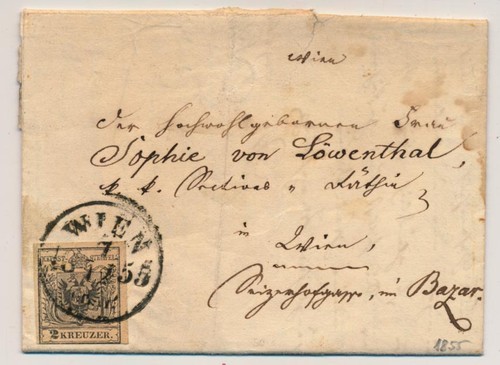 Wien
Der Hochwohlgebornen Frau
Sophie von Löwenthal,
k. k. Sections " Räthin
in
Wien,
Seizerhofgasse, im Bazar.
WIEN
7
55
2 KREUZER.
1855